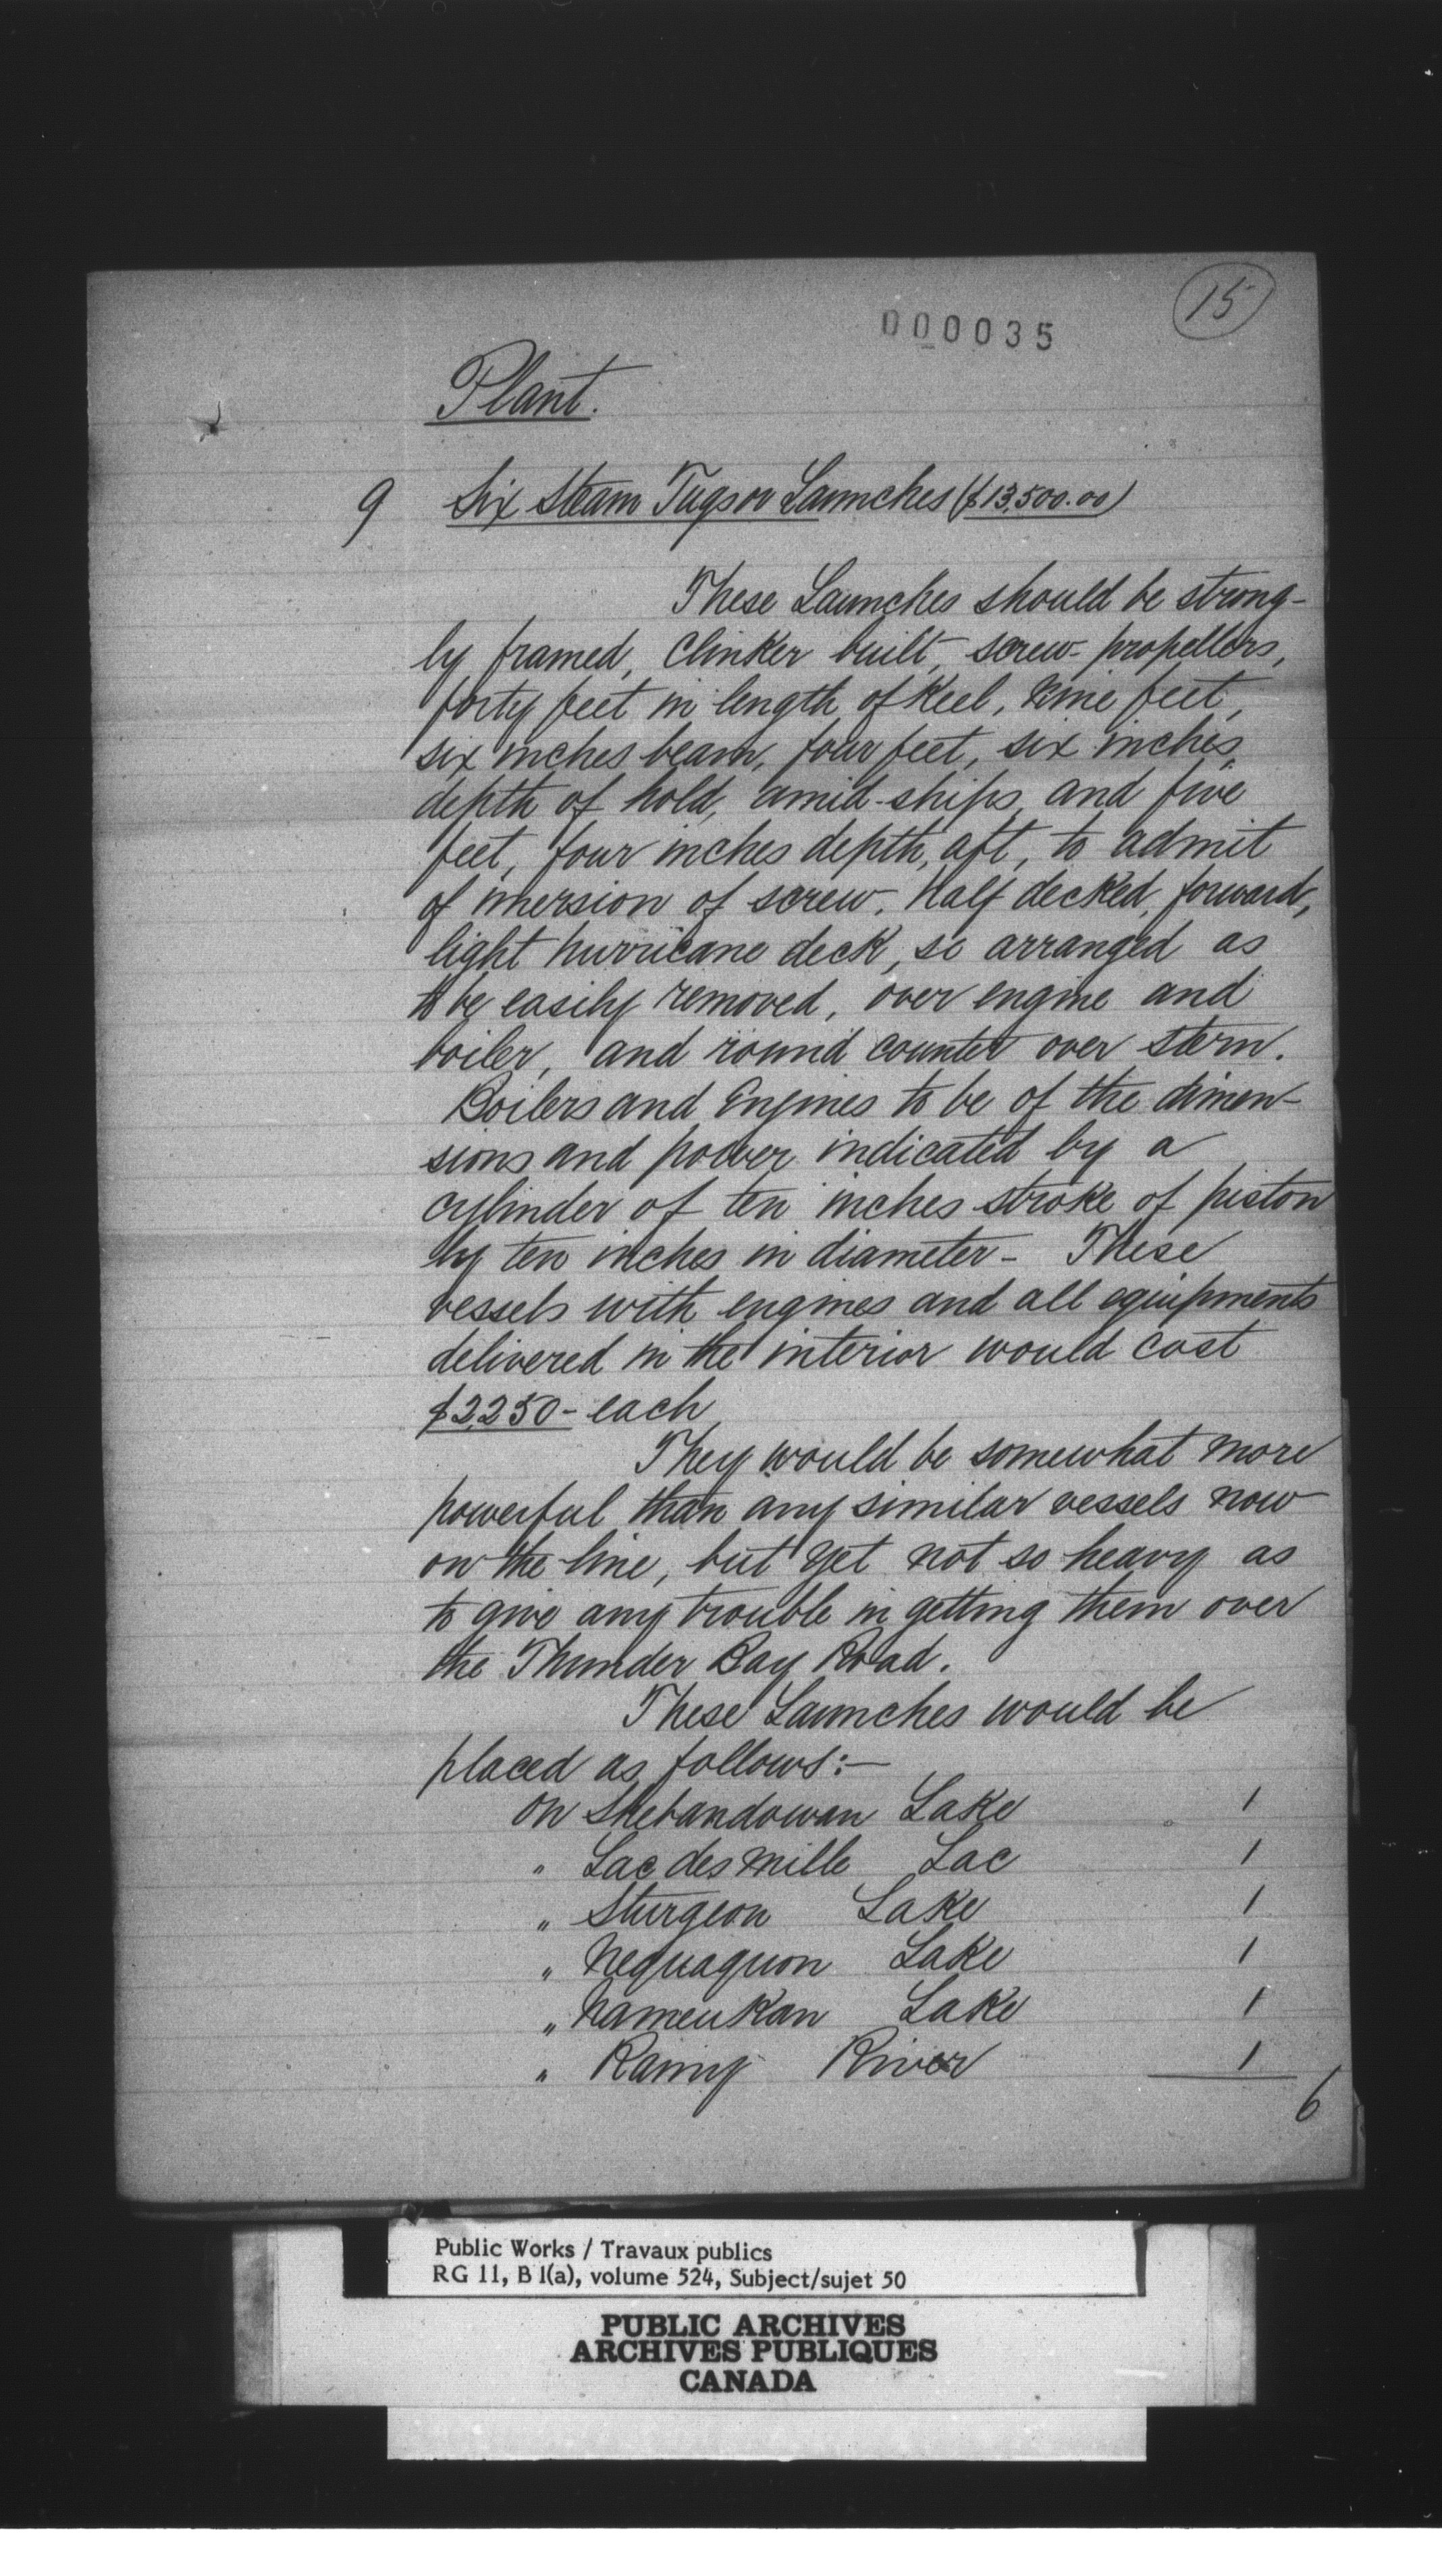 15
000035
Plant.
9 Six Steam Tugs or Launches ($13,500.00)
These Launches should be strong-
ly framed, Clinker built, screw-propellers,
forty feet in length of Keel, Nine feet,
six inches beam, four feet, six inches,
depth of hold, amid-ships, and five
feet, four inches depth, aft, to admit
of imersion of screw. Half decked, forward,
light hurricane deck, so arranged as
to be easily removed, over engine and
boiler, and round counter over stern.
Boilers and Engines to be of the dimen-
sions and power indicated by a
cylinder of ten inches stroke of piston
by ten inches in diameter - These
vessels with engines and all equipments
delivered in the interior would cost
$2,250- each
They would be somewhat more
powerful than any similar vessels now
on the line, but yet not so heavy as
to give any trouble in getting them over
the Thunder Bay Road.
These Launches would be
placed as follows:-
On Shebandowan Lake 1
" Lac des Mille Lac 1
" Sturgeon Lake 1
" Nequaquon Lake 1
" Nameukan Lake 1
" Rainy River 1
6
Public Works / Travaux publics
RG 11, B 1(a), volume 524, Subject/sujet 50
PUBLIC ARCHIVES
ARCHIVES PUBLIQUES
CANADA